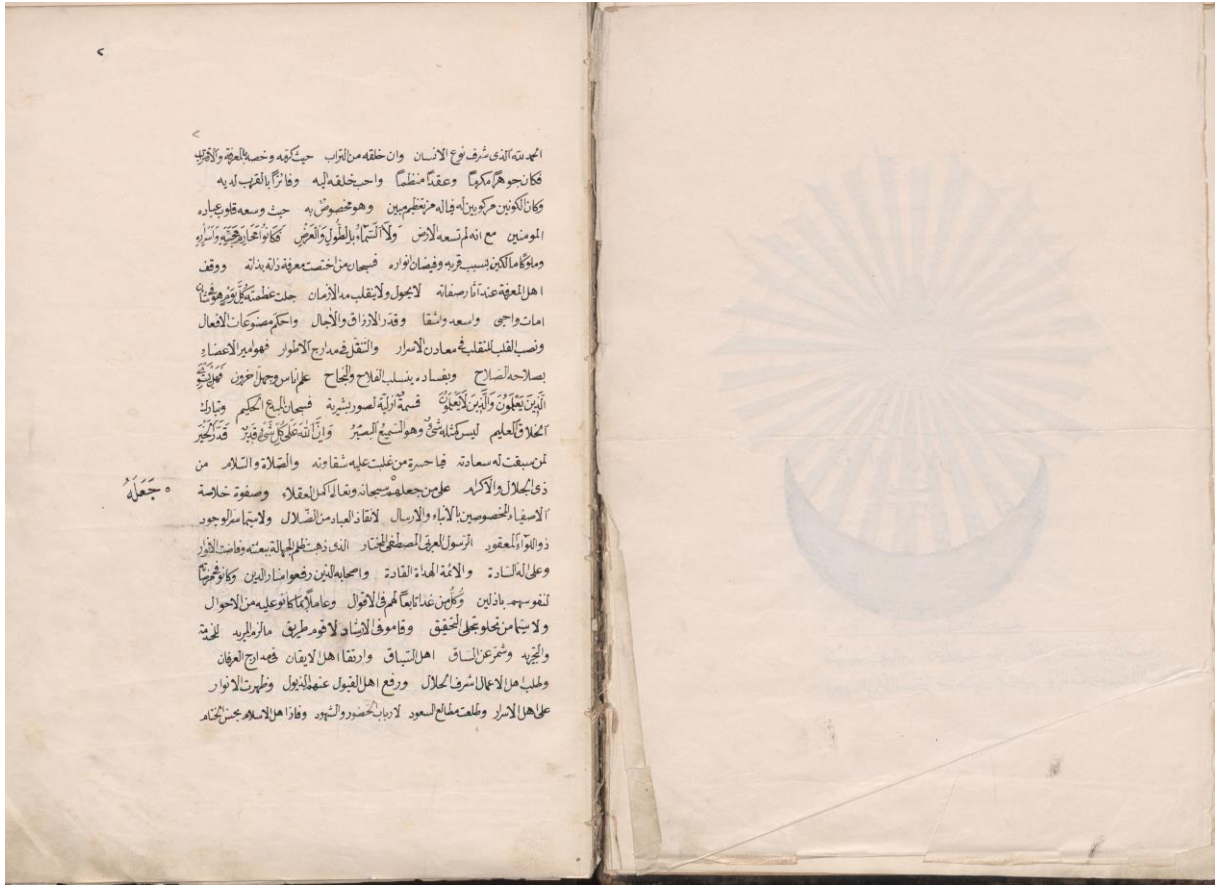 ٢
الحمد لله الذى شرف نوع الانسان وان خلقه من التراب حيث كرمه وخصه بالمعرفة والاقتراب
فكان جوهرًا مكرمًا وعقدًا منظمًا واحب خلقه اليه وفائزًا بالقرب لديه
وكان الكونين مركوبين له فياله من تعظيم مبين وهو مخصوص به حيث وسعه قلوب عباده
المومنين مع انه لم تسعه الارض ولا السَّمَاءُ بالطُّولِ وَالعَرْضِ فكانوا واسراره
وملوكا مالكين بسبب قربه وفيضان انواره فسبحان من اختصت معرفة ذاته بذاته ووقف
اهل المعرفة عند آثار صفاته لا يحول ولا يتقلب مد الازمان جلت عظمته كُلَّ يَوْمٍ هُوَ فِى شَان
امات واحيى واسعد واشقا وقدر الارزاق والآجال واحكم مصنوعات الافعال
ونصب القلب للتقلب فى معادن الاسرار والتنقل فى مدارج الاطوار فهو امير الاعضاء
بصلاحه الصَلاح وبفساده ينسلب الفلاح والنجاح علم اناس وجهل اخرون فَهَلْ يَسْتَوِى
الَّذِينَ يَعْلَمُونَ وَالَّذِينَ لَا يَعْلَمُونَ قسمةٌ ازلية لصور بشرية فسبحان المبدع الحكيم وتبارك
الخلاق العليم ليس كمثله شئ وهو السَّميعُ البصيْرُ وَانَّ اللهَ عَلَى كُلِّ شَئٍ قَدِيرٌ قَدَّرَ الخَيْرَ
لمن سبقت له سعادته فيا حسرة من غلبت عليه شقاوته والصَلاة والسَلام من
ذى الجلال والاكرام على من جعلهم سبحانه وتعالى اكمل العقلاء وصفوة خلاصة
جَعَلَهُ
الاصفياء المخصوصين بالانباء والارسال لانقاذ العباد من الضَلال ولاسيما سر الوجود
ذو اللوآء المعقود الرسول العربى المصطفى المختار الذى ذهبت ظلم الجهالة ببعثته وفاضت الانوار
وعلى اله السَادة والائمة الهداة القادة واصحابه الذين رفعوا منار الدين وكانو
لنفوسهم باذلين وكُلُّ من غدا تابعاً لهم فى الاقوال وعاملاً بما كانو عليه من الاحوال
ولاسيما من تحلو بحلى التحقيق وقامو فى الارشاد لاقوم طريق مالزم المريد للخدمة
والتجريد وشمّر عن السَاق اهل السَباق وارتقا اهل الايقان فى مدارج العرفان
وطلب اهل الاعمال اشرف الحلال ورفع اهل القبول عنهم الذيول وظهرت الانوار
على اهل الاسرار وطلعت مطالع السعود لارباب الحضور والشهود وفاز اهل الاسلام بحسن الختام